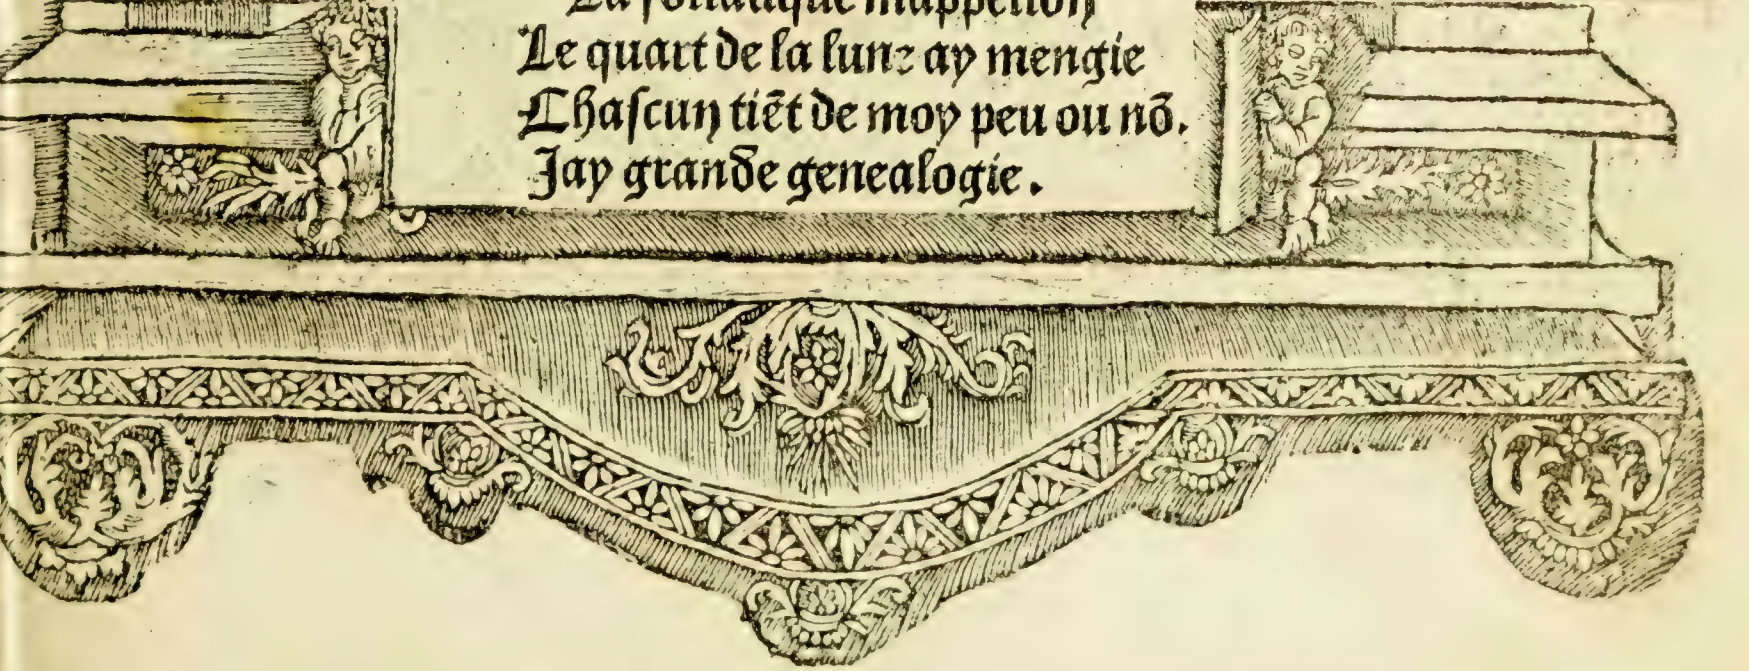 La mappellon
Le quart de la lune ay mengie
Chaſcun tiēt de moy peu ou nō.
Jay grande genealogie.